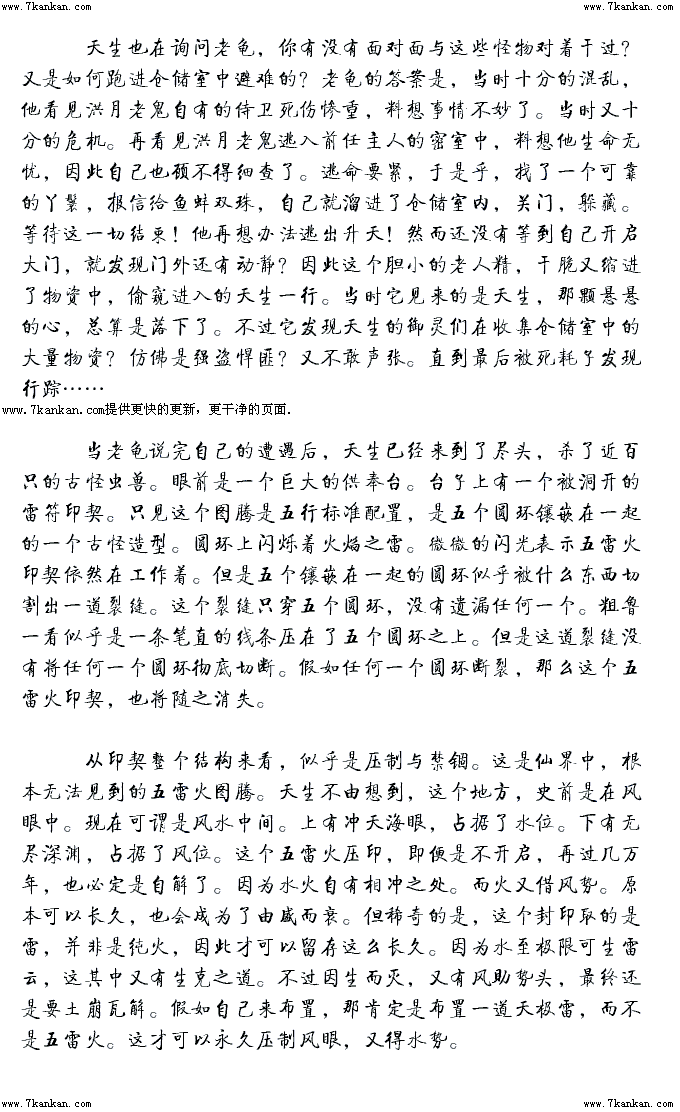 www.7kankan.com www.7kankan.com
天生也在询问老龟，你有没有面对面与这些怪物对着干过？
又是如何跑进仓储室中避难的？老龟的答案是，当时十分的混乱，
他看见洪月老鬼自有的侍卫死伤惨重，料想事情不妙了。当时又十
分的危机。再看见洪月老鬼逃入前任主人的密室中，料想他生命无
忧，因此自己也顾不得细查了。逃命要紧，于是乎，找了一个可靠
的丫鬟，报信给鱼蚌双珠，自己就溜进了仓储室内，关门，躲藏。
等待这一切结束！他再想办法逃出升天！然而还没有等到自己开启
大门，就发现门外还有动静？因此这个胆小的老人精，干脆又缩进
了物资中，偷窥进入的天生一行。当时它见来的是天生，那颗悬悬
的心，总算是落下了。不过它发现天生的御灵们在收集仓储室中的
大量物资？仿佛是强盗悍匪？又不敢声张。直到最后被死耗子发现
行踪……
www.7kankan.com提供更快的更新，更干净的页面.
当老龟说完自己的遭遇后，天生已经来到了尽头，杀了近百
只的古怪虫兽。眼前是一个巨大的供奉台。台子上有一个被洞开的
雷符印契。只见这个图腾是五行标准配置，是五个圆环镶嵌在一起
的一个古怪造型。圆环上闪烁着火焰之雷。微微的闪光表示五雷火
印契依然在工作着。但是五个镶嵌在一起的圆环似乎被什么东西切
割出一道裂缝。这个裂缝只穿五个圆环，没有遗漏任何一个。粗鲁
一看似乎是一条笔直的线条压在了五个圆环之上。但是这道裂缝没
有将任何一个圆环彻底切断。假如任何一个圆环断裂，那么这个五
雷火印契，也将随之消失。
从印契整个结构来看，似乎是压制与禁锢。这是仙界中，根
本无法见到的五雷火图腾。天生不由想到，这个地方，史前是在风
眼中。现在可谓是风水中间。上有冲天海眼，占据了水位。下有无
尽深渊，占据了风位。这个五雷火压印，即便是不开启，再过几万
年，也必定是自解了。因为水火自有相冲之处。而火又借风势。原
本可以长久，也会成为了由盛而衰。但稀奇的是，这个封印取的是
雷，并非是纯火，因此才可以留存这么长久。因为水至极限可生雷
云，这其中又有生克之道。不过因生而灭，又有风助势头，最终还
是要土崩瓦解。假如自己来布置，那肯定是布置一道天极雷，而不
是五雷火。这才可以永久压制风眼，又得水势。
www.7kankan.com www.7kankan.com